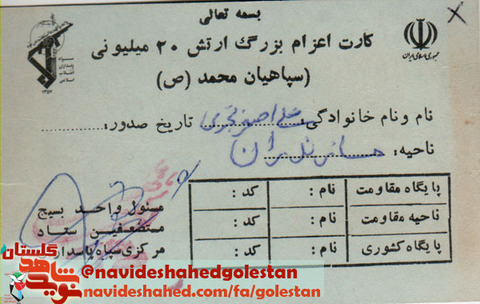 بسمه تعالی
کارت اعزام بزرگ ارتش ۲۰ میلیونی
(سپاهیان محمد (ص)
جمهوری اسلامی ایران
نام و نام خانوادگی: علی اصغر تاریخ صدور:
ناحیه: مازندران
پایگاه مقاومت نام: کد:
ناحیه مقاومت نام: کد:
پایگاه کشوری نام: کد:
مسئول واحد بسیج
مستضعفین ستاد
مرکزی سپاه پاسدار
نوید شاهد گلستان
@navideshahedgolestan
navideshahed.com/fa/golestan